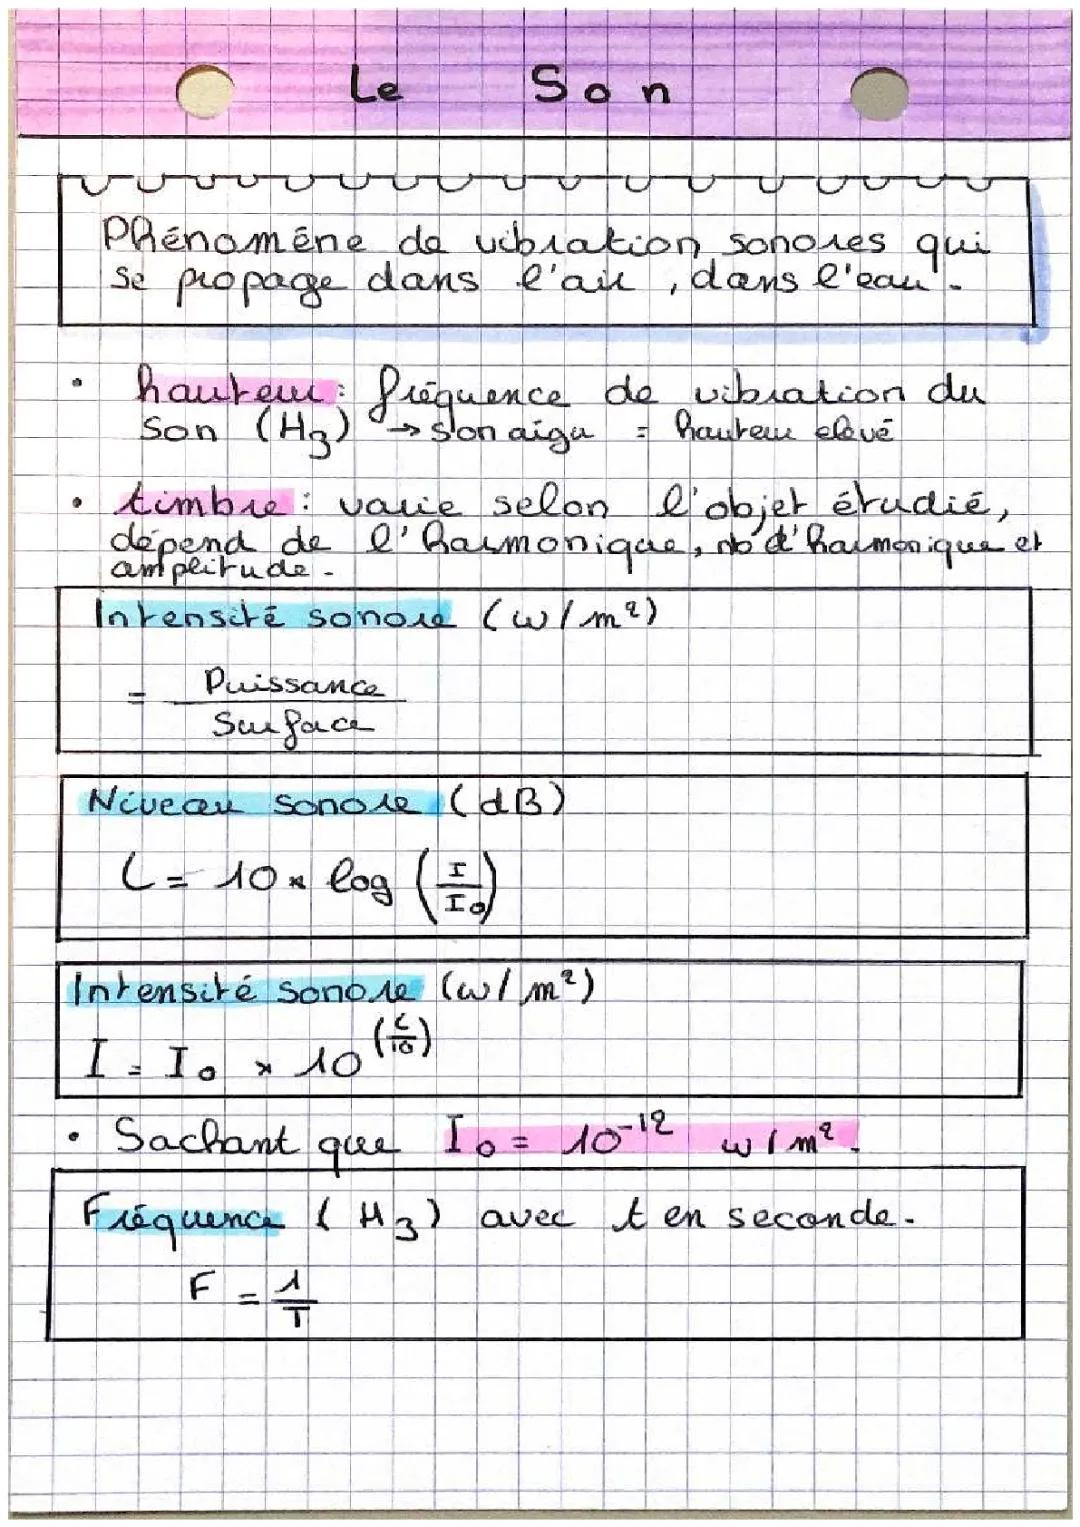 Le Son
Phénomène de vibration sonores qui
se propage dans l'air, dans l'eau.
• hauteur : fréquence de vibration du
son (Hz) → son aigu = hauteur elevé
• timbre : varie selon l'objet étudié,
dépend de l'harmonique, nb d'harmonique et
amplitude.
Intensité sonore (w/m²)
= Puissance
Surface
Niveau sonore (dB)
L = 10 × log (I/I₀)
Intensité sonore (w/m²)
I = I₀ × 10^(L/10)
• Sachant que I₀ = 10⁻¹² w/m².
Fréquence (Hz) avec t en seconde.
F = 1/T